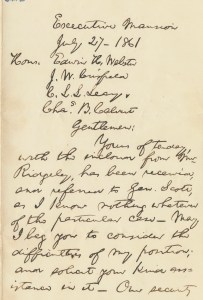 Executive Mansion
July 27 - 1861
Hons. Edwin H. Webster
J. W. Crisfield
C. L. L. Leary &
Chas. B. Calvert
Gentlemen:
Yours of to-day,
with the inclosure from Gov.
Ridgeley, has been received
and referred to Gen. Scott,
as I know nothing whatever
of the particular case - May
I beg you to consider the
difficulties of my position,
and solicit your kind ass-
istance in it - Our security